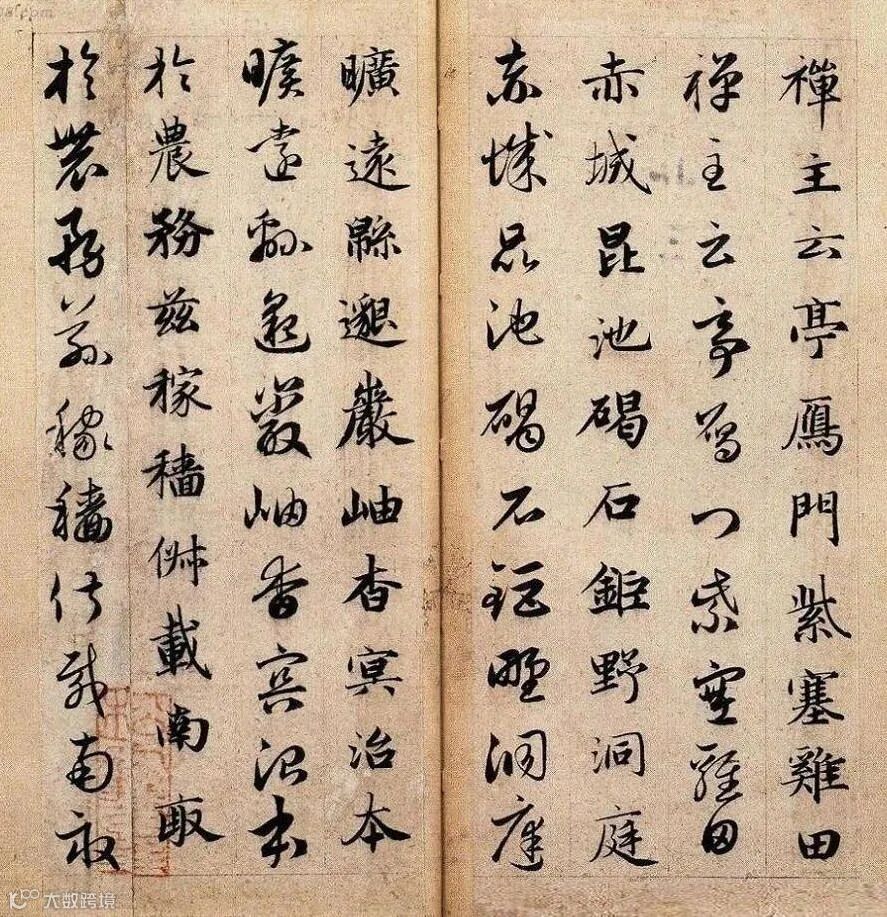 禪主云亭鴈門紫塞雞田
禪主云亭鴈門紫塞雞田
赤城昆池碣石鉅野洞庭
赤城昆池碣石鉅野洞庭
曠遠緜邈巖岫杳冥治本
曠遠緜邈巖岫杳冥治本
於農務茲稼穡俶載南畝
於農務茲稼穡俶載南畝
大数跨境